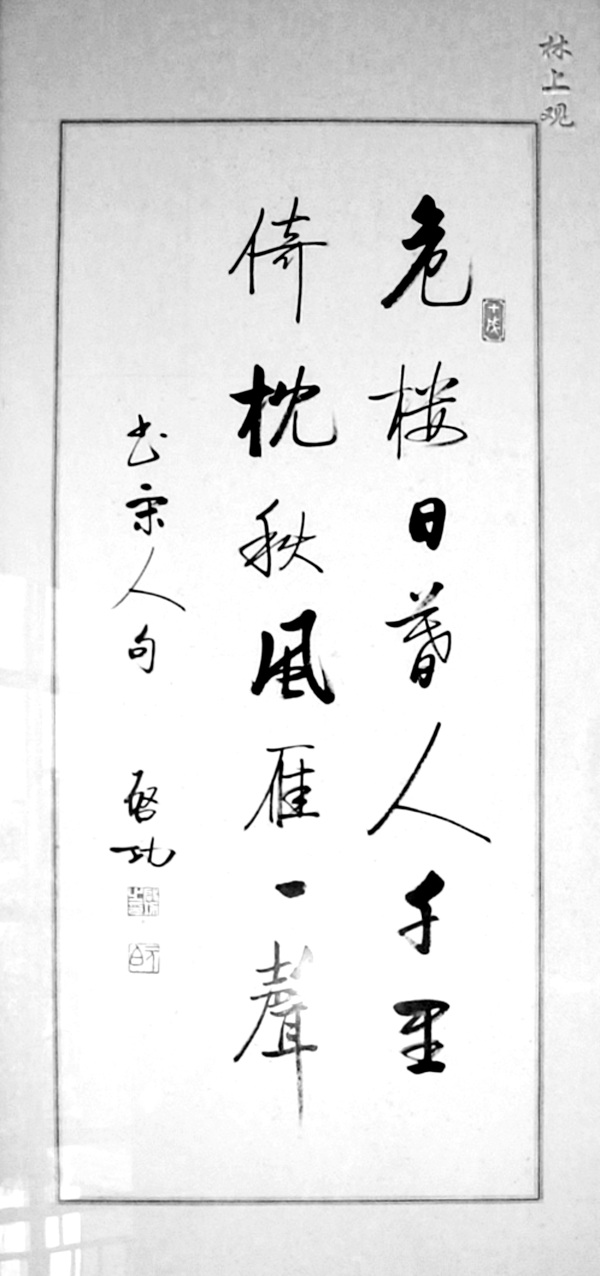 危楼日暮人千里
倚枕秋風雁一聲
书宋人句
啓功
林上观